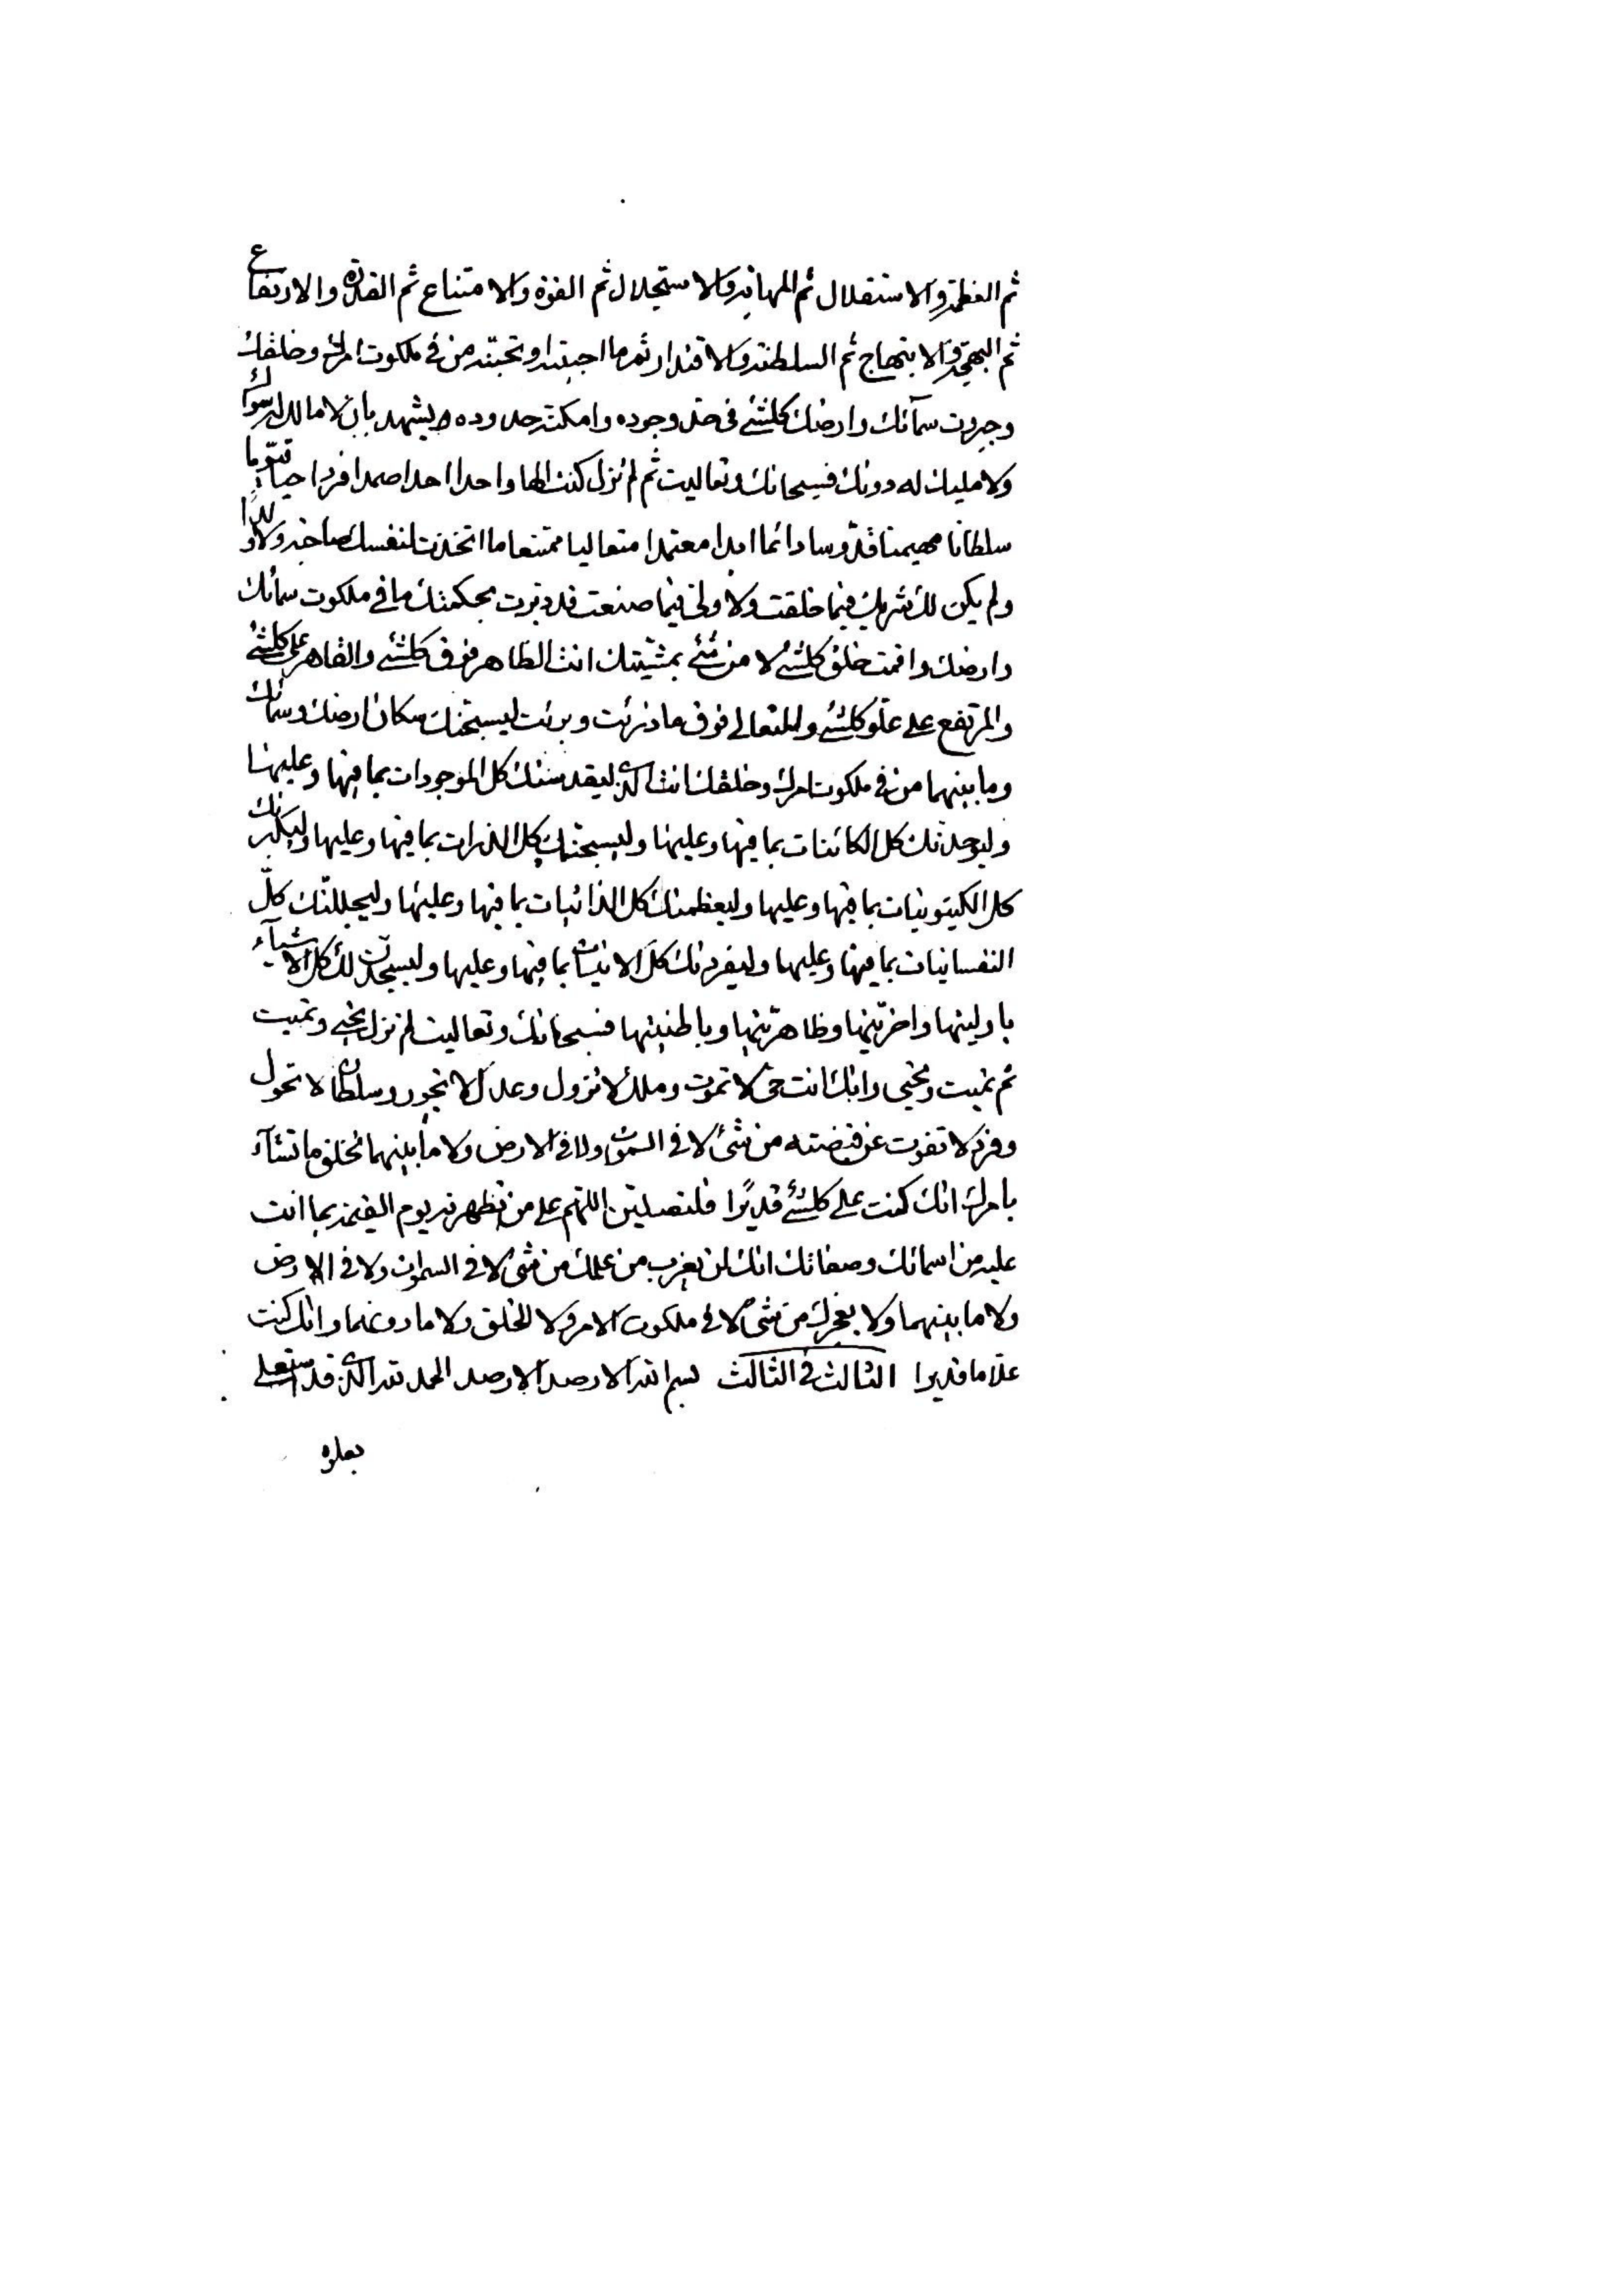 ثم العظمة والاستقلال ثم المهابة والاستجلال ثم القوة والامتناع ثم القدرة والارتفاع
ثم البهجة والابتهاج ثم السلطنة والاقتدار ثم ما احببته او تحبنه من في ملكوت امرك وخلقك
وجبروت سمآئك وارضك كلشئ في حد وجوده وامكنة حدوده ليشهد بان لا مالك له سواك
ولا مليك له دونك فسبحانك وتعاليت ثم لم تزل كنت الها واحدا احدا صمدا فردا حيا قيّوما
سلطانا مهيمنا قدّوسا دائما ابدا معتمدا متعاليا ممتنعا ما اتخذت لنفسك صاحبة ولا ولدا
ولم يكن لك شريك فيما خلقت ولا ولي فيما صنعت قد دبّرت بحكمتك ما في ملكوت سمائك
وارضك واقمت خلق كلشئ لا من شئ بمشيّتك انت الظاهر فوق كلشئ والقاهر على كلشئ
والمرتفع على علوّ كلشئ والمتعالي فوق ما ذرئت وبرئت ليسبّحنك سكان ارضك وسمائك
وما بينهما من في ملكوت امرك وخلقك انت الذي ليقدسنك كل الموجودات بما فيها وعليها
وليوحدنك كل الكائنات بما فيها وعليها وليسبحنك كل الذرات بما فيها وعليها وليكبرنك
كل الكينونيات بما فيها وعليها وليعظمنك كل الذاتيات بما فيها وعليها وليجللنّك كلّ
النفسانيات بما فيها وعليها وليفردنك كل الانيات بما فيها وعليها وليسجدنّ لك كل الاشيآء
باوليتها واخريّتها وظاهريّتها وباطنيتها فسبحانك وتعاليت لم تزل تحيي وتميت
ثم تميت وتحيي وانك انت حي لا تموت وملك لا تزول وعدل لا تجور وسلطان لا تحول
وفرد لا تفوت عن قبضته من شئ لا في السموات ولا في الارض ولا ما بينهما تخلق ما تشآء
بامرك انك كنت على كلشئ قديرًا فلتصلين اللهم على من تظهرنه يوم القيمة بما انت
عليه من اسمائك وصفاتك انك لن يعزب من علمك من شئ لا في السموات ولا في الارض
ولا ما بينهما ولا يعجزك من شئ لا في ملكوت الامر والا الخلق ولا ما دونهما وانك كنت
علّاما قديرا الثالث في الثالث بسم الله الارصد الارصد الحمد لله الذي قد استعلى
بعلوه